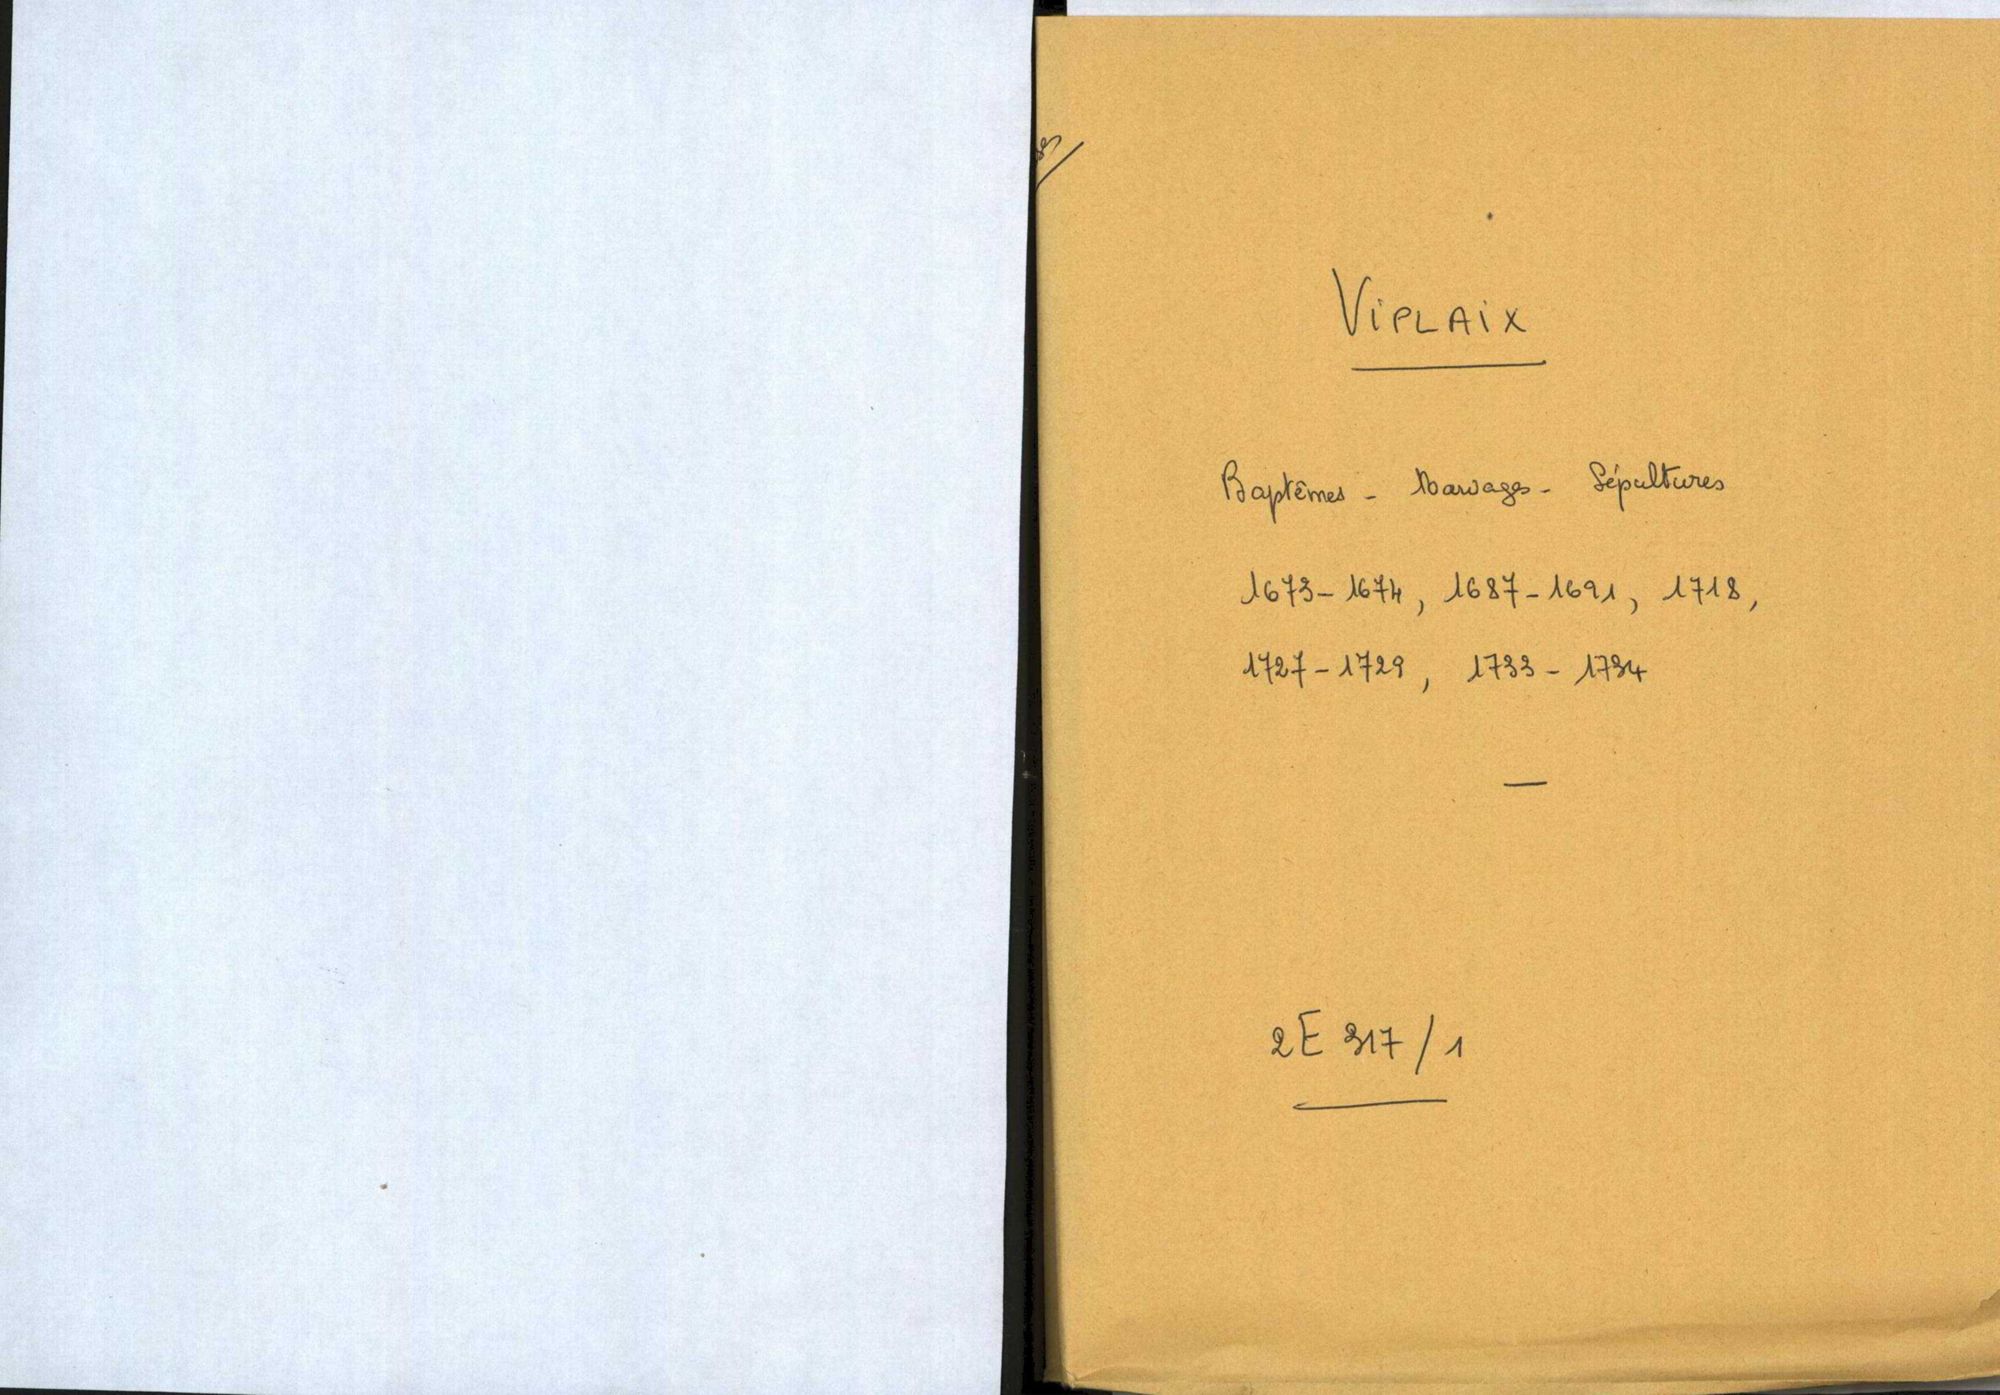 VIPLAIX
Baptêmes - Mariages - Sépultures
1673-1674, 1687-1691, 1718,
1727-1729, 1733-1734
2E 317/1